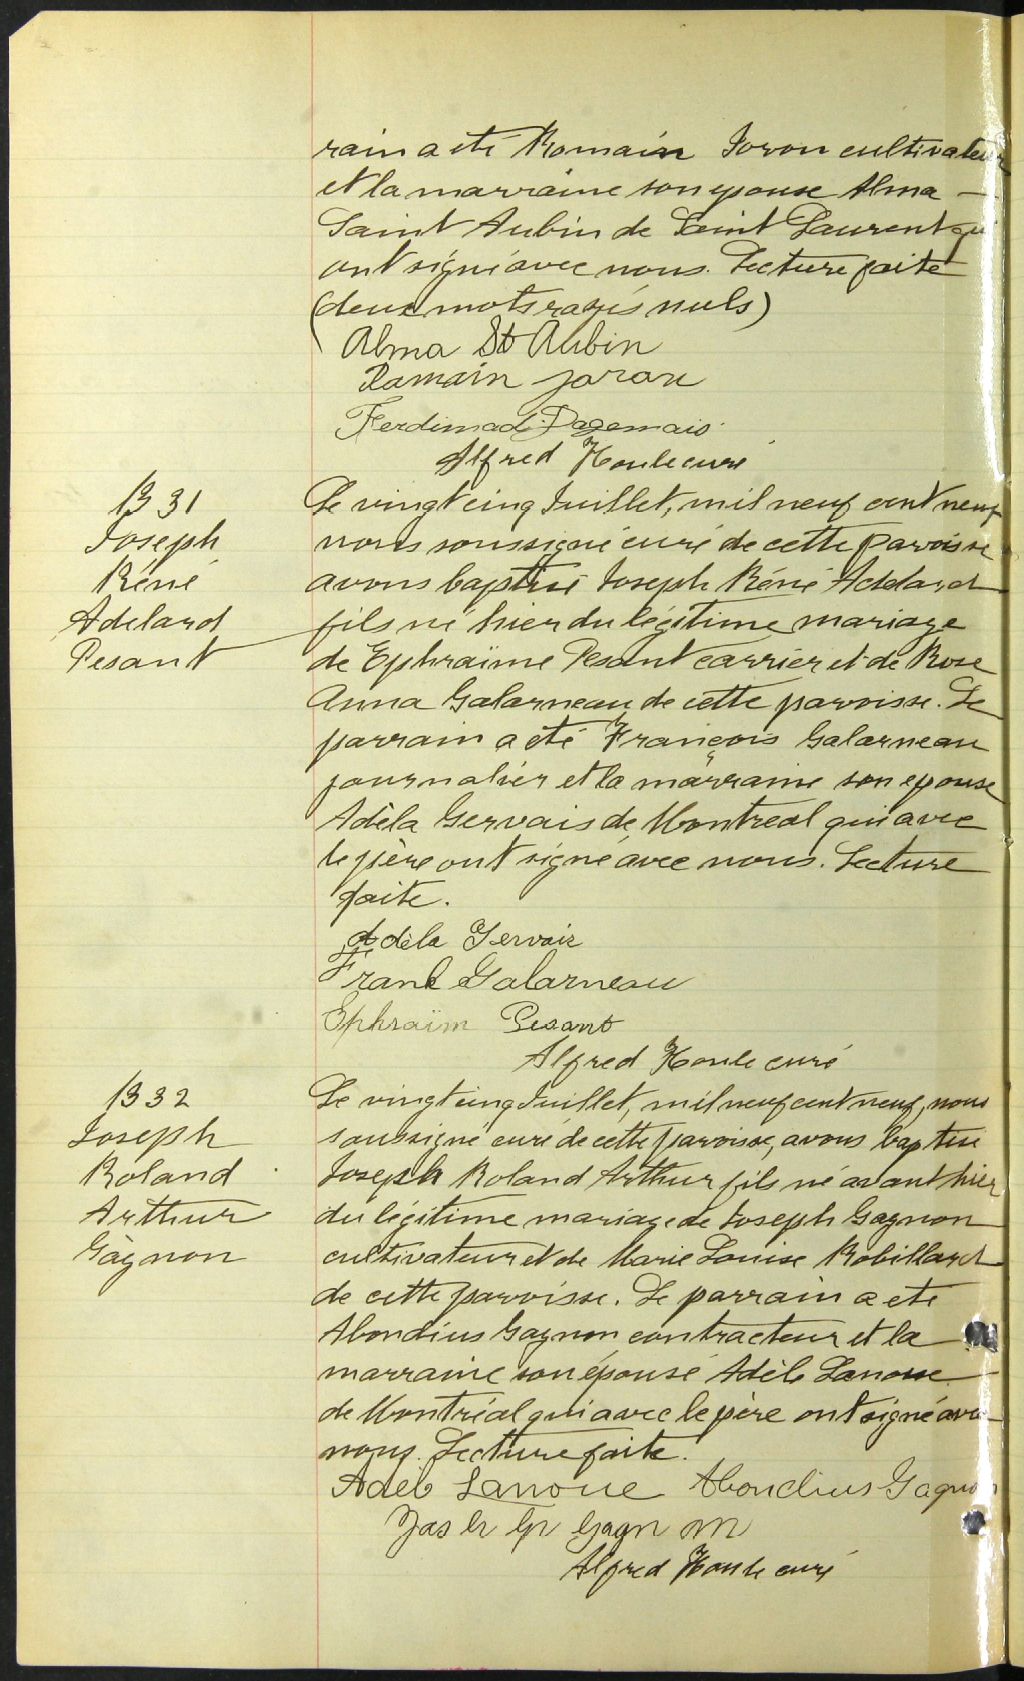 rain a été Romain Joron cultivateur
et la marraine son epouse Alma —
Saint Aubin de Saint Laurent qui
ont signé avec nous. Lecture faite
(deux mots rayés nuls)
Alma St Aubin
Romain Joron
Ferdinad Dagenais
Alfred Houle curé
B 31
Joseph
Réné
Adelard
Pesant
Le vingt cinq Juillet, mil neuf cent neuf
nous soussigné curé de cette paroisse
avons baptisé Joseph Réné Adelard
fils né hier du légitime mariage
de Ephraïme Pesant carrier et de Rose
Anna Galarneau de cette paroisse. Le
parrain a été François Galarneau
journalier et la marraine son epouse
Adèla Gervais de Montreal qui avec
le père ont signé avec nous. Lecture
faite.
Adèla Gervais
Frank Galarneau
Ephraïm Pesant
Alfred Houle curé
B 32
Joseph
Roland
Arthur
Gagnon
Le vingt cinq Juillet, mil neuf cent neuf, nous
soussigné curé de cette paroisse, avons baptisé
Joseph Roland Arthur fils né avant hier
du légitime mariage de Joseph Gagnon
cultivateur et de Marie Louise Robillard
de cette paroisse. Le parrain a ete
Abondius Gagnon contracteur et la
marraine son épouse Adèle Lanoue
de Montréal qui avec le père ont signé avec
nous. Lecture faite.
Adele Lanoue Abondius Gagnon
Gagn
Alfred Houle curé